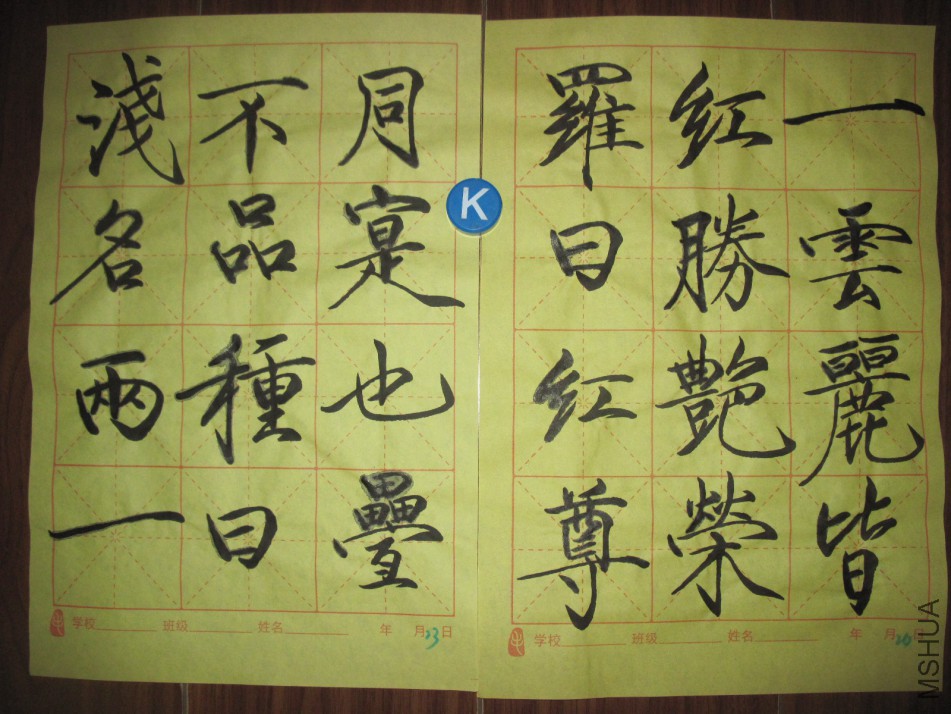 一雲麗皆
紅勝艷榮
羅曰紅尊
同寔也疊
不品種曰
淺名兩一
K
学校 班级 姓名 年 月23日
学校 班级 姓名 年 月 日
MSHUA